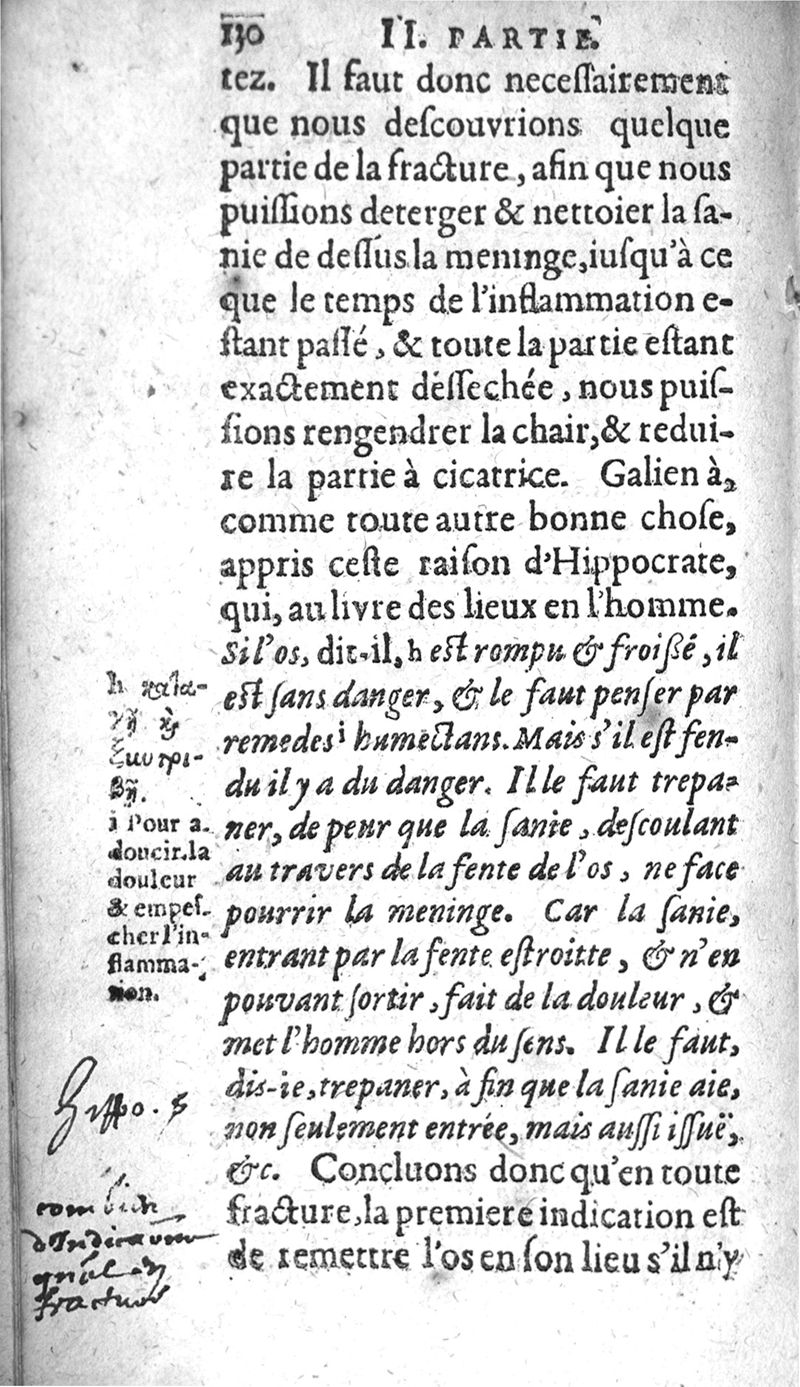 130 II. PARTIE.
tez. Il faut donc neceſſairement
que nous deſcouvrions quelque
partie de la fracture, afin que nous
puiſſions deterger & nettoier la ſa-
nie de deſſus la meninge, iuſqu'à ce
que le temps de l'inflammation e-
ſtant paſſé, & toute la partie eſtant
exactement deſſechée, nous puiſ-
ſions rengendrer la chair, & redui-
re la partie à cicatrice. Galien à,
comme toute autre bonne choſe,
appris ceſte raiſon d'Hippocrate,
qui, au livre des lieux en l'homme.
Si l'os, dit-il, h eſt rompu & froiſſé, il
eſt ſans danger, & le faut penſer par
remedes i humectans. Mais s'il eſt fen-
du il y a du danger. Il le faut trepa-
ner, de peur que la ſanie, deſcoulant
au travers de la fente de l'os, ne face
pourrir la meninge. Car la ſanie,
entrant par la fente eſtroitte, & n'en
pouvant ſortir, fait de la douleur, &
met l'homme hors du ſens. Il le faut,
dis-ie, trepaner, à fin que la ſanie aie,
non ſeulement entrée, mais auſſi iſſuë,
&c. Concluons donc qu'en toute
fracture, la premiere indication eſt
de remettre l'os en ſon lieu s'il n'y
h
i Pour a-
doucir la
douleur
& empeſ-
cher l'in-
flamma-
tion.
Hippo.
combien
d'Indica
en
fracture